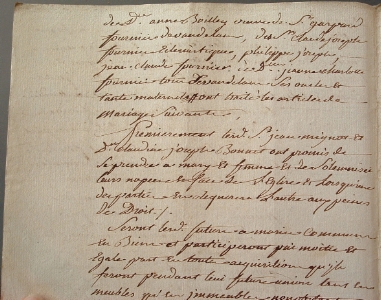 de D.e anne Boilley veuve de S.r
fournier de vaudelain, de S.r Claude joseph
fournier, philippe joseph
jean claude fournier, et D.lle jeanne charlotte
fournier tous de vaudelain, ses oncles et
tante maternels ont traité les articles de
Mariage Suivants,
Premierement led. S.r jean mignot et
D.lle Claudine joseph Bonnet ont promis de
Se prendre a mary et femme et de Solemniser
leurs nopces en face de S.te Eglise et Lorsqu'une
des parties en requerra L'autre aux peines
de Droit /.
Seront lesd. futurs a marier Communs
en Biens et participeront par moitié et
egale part en toute acquisition qu'ils
feront pendant leur future union tant en
meubles qu'en immeubles